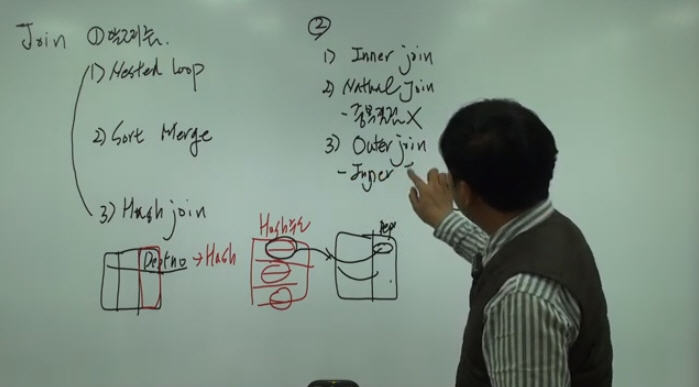 Join ① 알고리즘.
1) Nested loop
2) Sort Merge
3) Hash join
Deptno → Hash
Hash함수
②
1) Inner join
2) Natual Join
- 중복컬럼 X
3) Outer join
- Inner
Dept